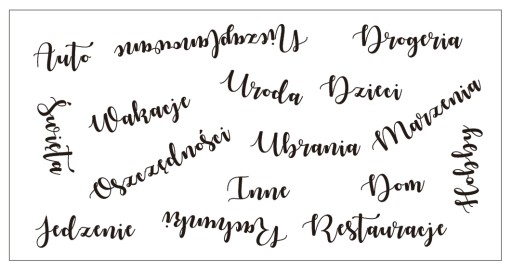 Auto
Niezaplanowane
Drogeria
Uroda
Dzieci
Święta
Wakacje
Marzenia
Oszczędności
Ubrania
Hobby
Inne
Dom
Jedzenie
Rachunki
Restauracje